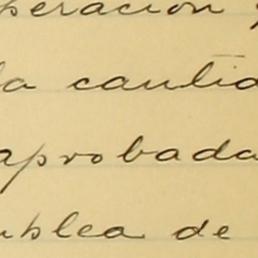 peración y
la cantid
aprobada
mblea de